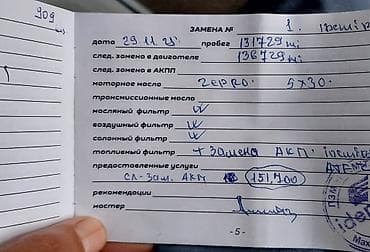 909
ЗАМЕНА № 1.
дата 29 11 пробег 131729 mi
след. замена в двигателе 138729 mi
след. замена в АКПП
моторное масло ZEPRO 5x30.
трансмиссионные масло
масляный фильтр
воздушный фильтр
салонный фильтр
топливный фильтр + замена АКП.
предоставленные услуги
сл-зам. АКП 151,700
рекомендации
мастер
-5-